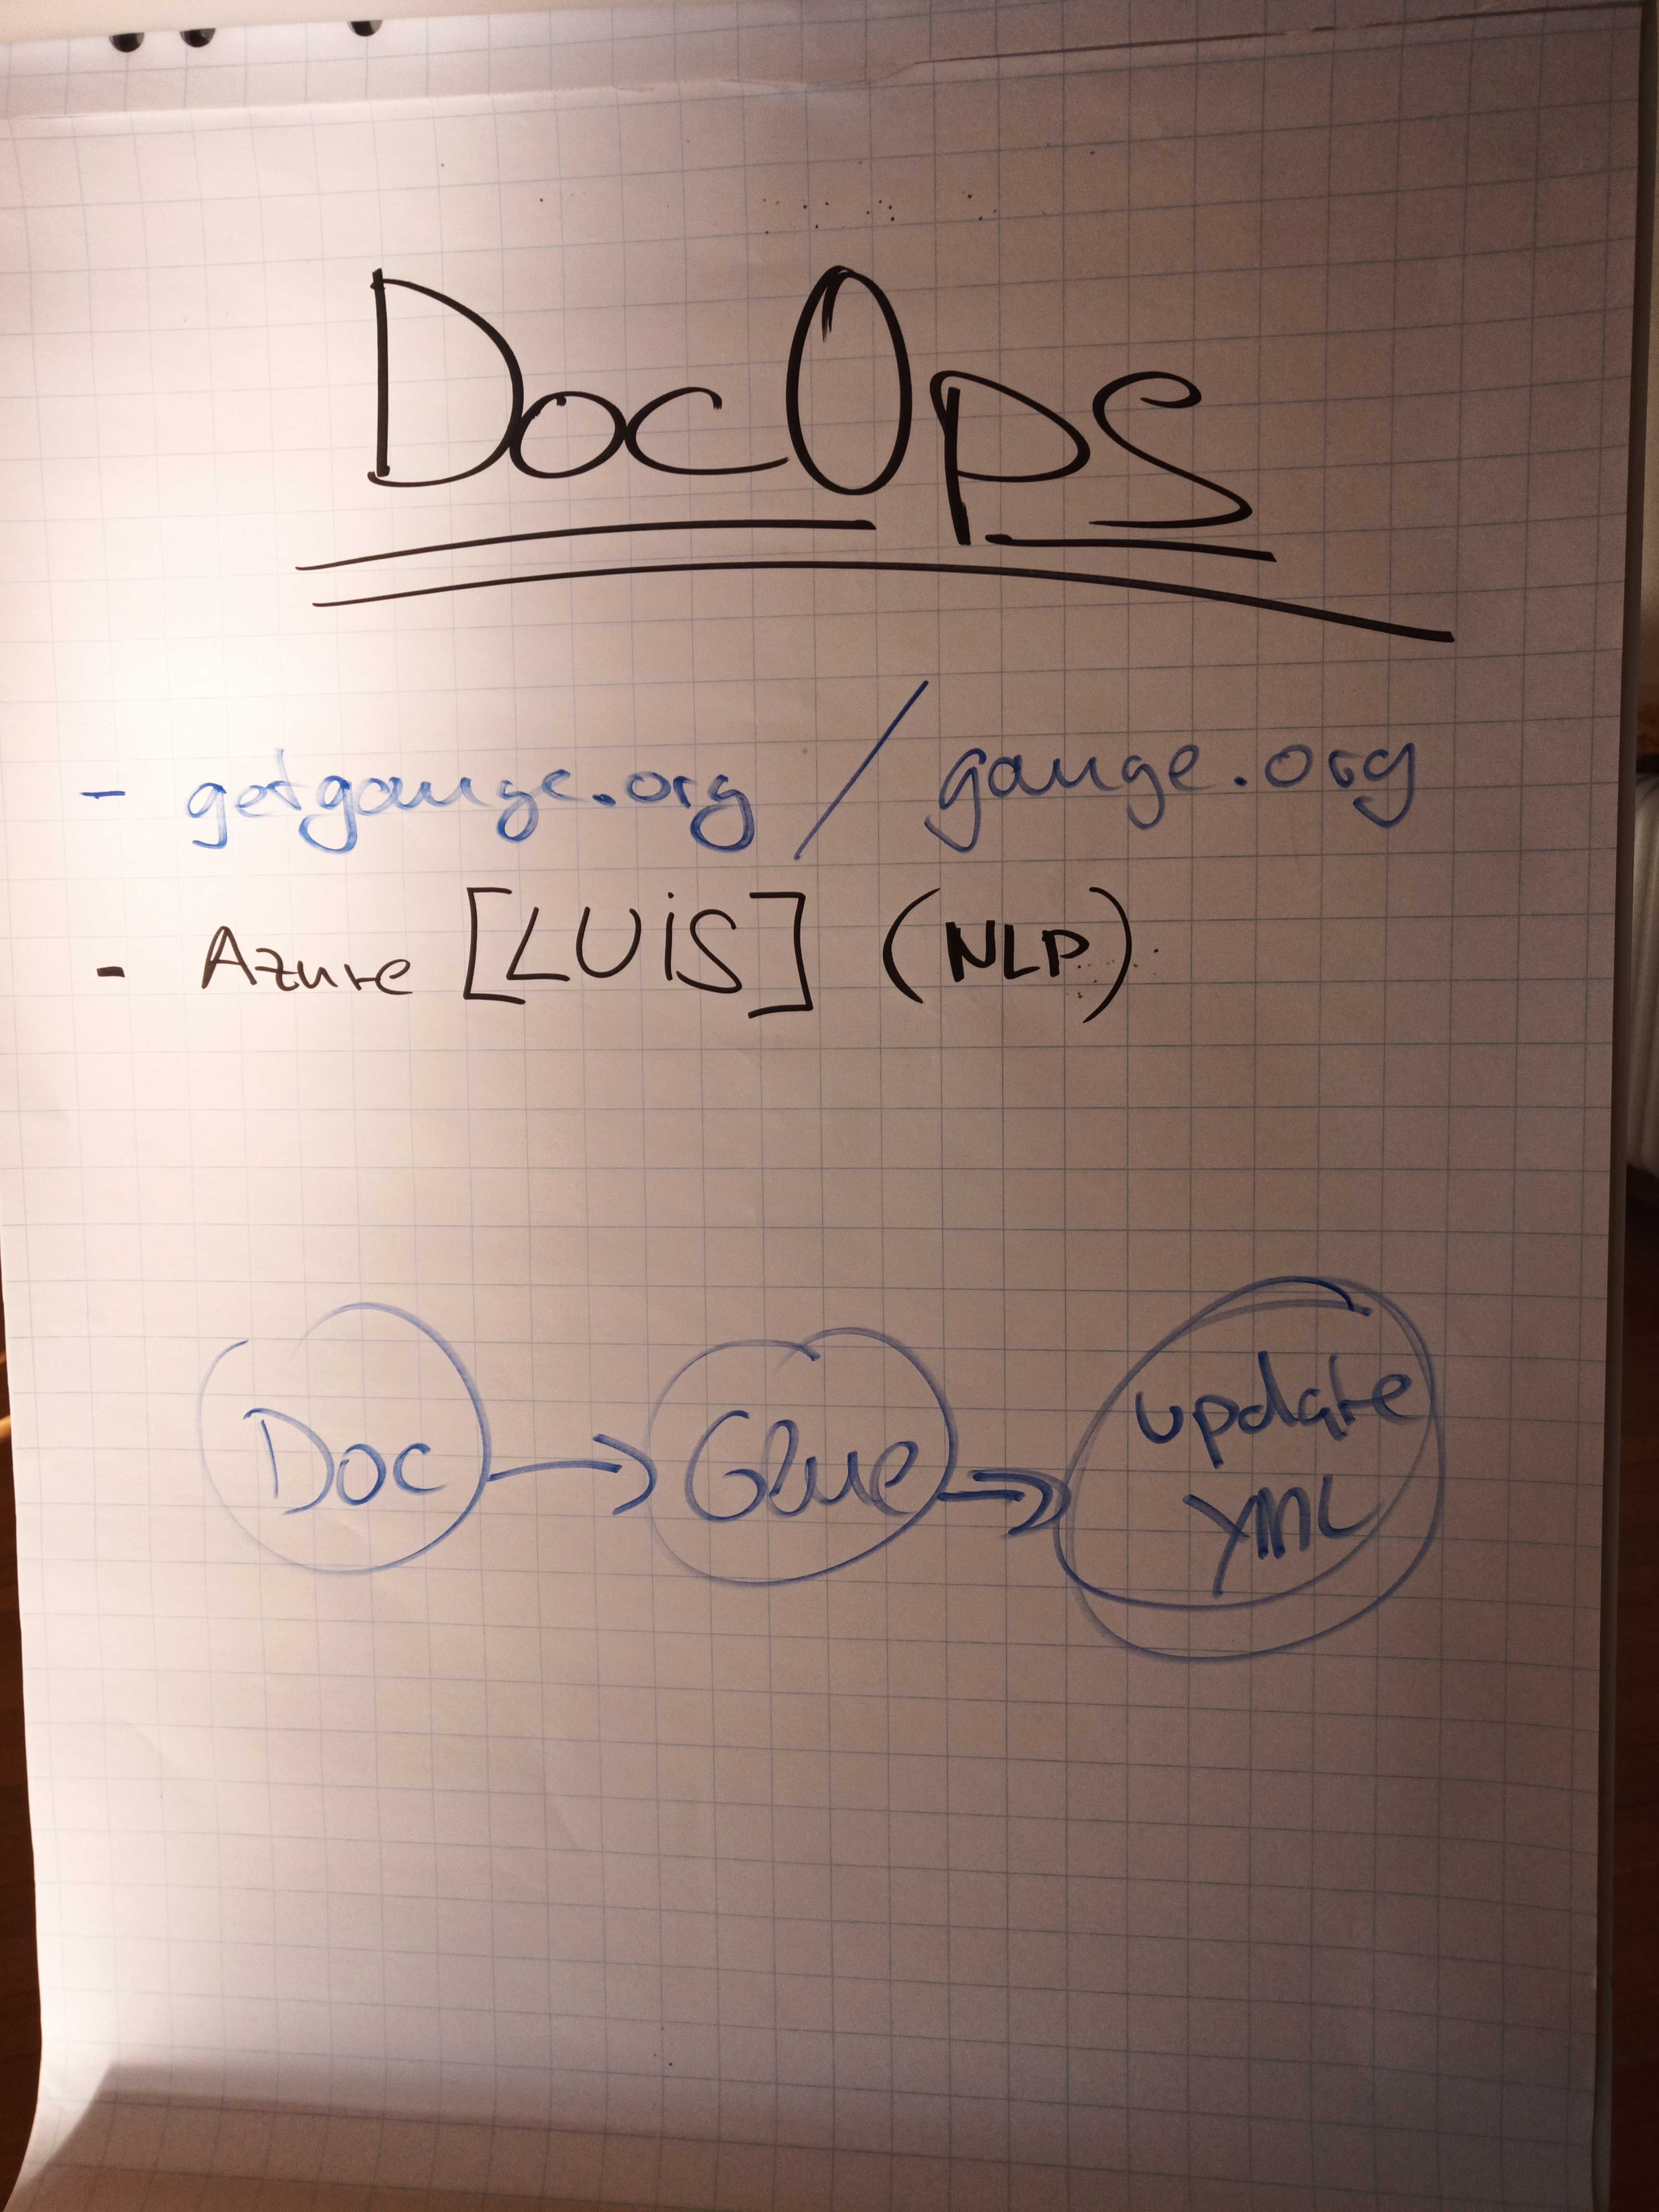 DocOps
- getgauge.org / gauge.org
- Azure [LUiS] (NLP)
Doc → Glue → update
YML